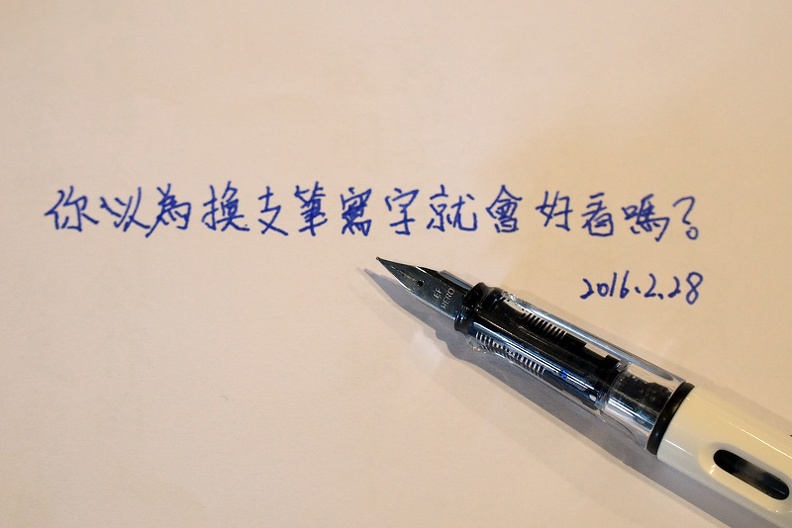 你以為換支筆寫字就會好看嗎?
2016.2.28
EF
HERO